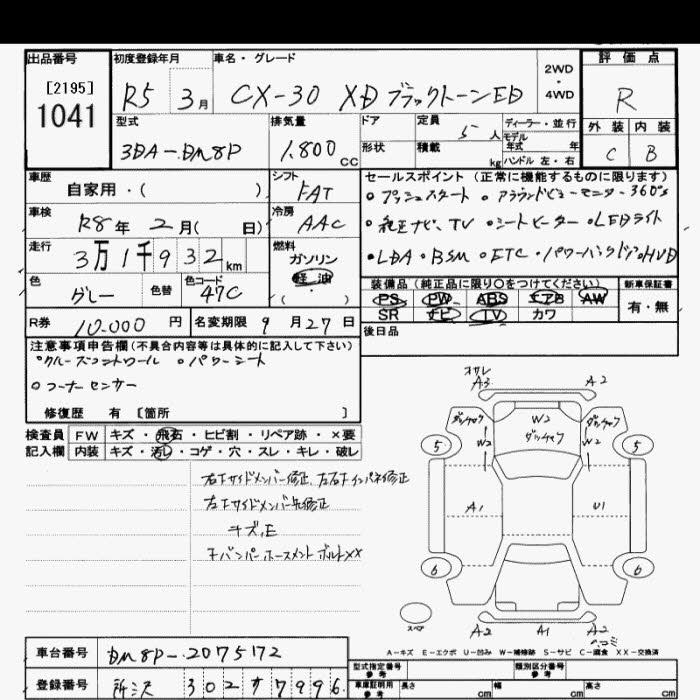 出品番号 初度登録年月 車名・グレード 2WD・4WD 評価点
[2195]
1041
R5 3月 CX-30 XD ブラックトーンED R
型式 排気量 ドア 定員 5人 ディーラー・並行 外装 内装
3DA-DM8P 1.800cc 形状 積載 kg モデル年式 年 ハンドル 左・右 C B
車歴 自家用・( ) シフト FAT
セールスポイント (正常に機能するものに限ります)
○プッシュスタート ○アラウンドビューモニター 360°s
車検 R8年 2月( 日) 冷房 AAC
・純正ナビ、TV ○シートヒーター ○LEDライト
走行 3万1千932km 燃料 ガソリン 軽油 ( ・ )
・LDA ○BSM ○ETC ・パワーバックドア○HUD
色 グレー 色替 色コード 47C
装備品 (純正品に限り○をつけてください) 新車保証書
PS PW ABS エアB AW 有・無
SR ナビ TV カワ
R券 10.000円 名変期限 9月27日
後日品
注意事項申告欄(不具合内容等は具体的に記入して下さい)
○クルーズコントロール ○パワーシート
○コーナーセンサー
修復歴 有 [箇所 ]
検査員 FW キズ・飛石・ヒビ割・リペア跡・×要
記入欄 内装 キズ・汚レ・コゲ・穴・スレ・キレ・破レ
右Fサイドメンバー修正、左右Fインパネ修正
左Fサイドメンバー先修正
キズ、E
Fバンパーホースメント ボルト××
オサレ
A3 A2
W2
W2 W2
5 5
A1 U1
6 6
スペア
A2 A1 A2
A-キズ E-エクボ U-凹み W-補修跡 S-サビ C-腐食 XX-交換済
車台番号 DM8P-2075172
型式指定番号 参考 類別区分番号 参考
登録番号 所沢 302 ナ 7996
車庫証明用 参考 長さ cm 幅 cm 高さ cm